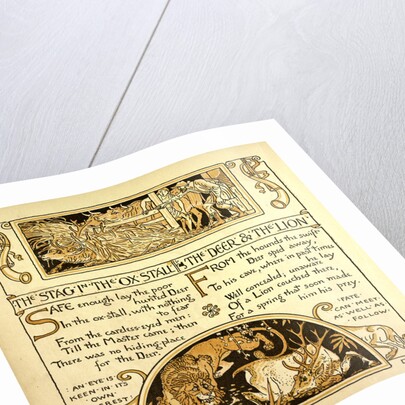 THE STAG IN THE OX-STALL & THE DEER & THE LION
SAFE enough lay the poor
hunted Deer
In the ox-stall, with nothing
to fear
From the careless-eyed men:
Till the Master came; then
There was no hiding-place
for the Deer.
: AN EYE IS
KEEN IN ITS
OWN
FROM the hounds the swift
Deer sped away,
To his cave, where in past times
he lay
Well concealed; unaware
Of a Lion couched there,
For a spring that soon made
him his prey.
: FATE
CAN MEET
AS WELL AS
FOLLOW :